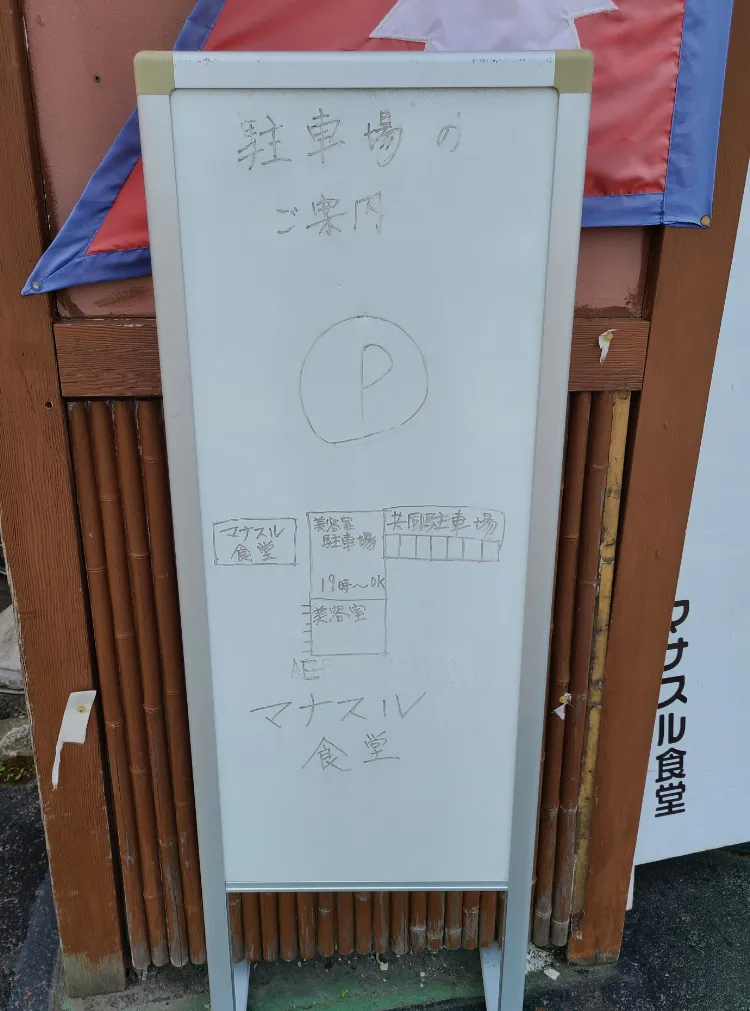 駐車場の
ご案内
P
マナスル
食堂
美容室
駐車場
19時〜OK
共同駐車場
美容室
マナスル
食堂
マナスル食堂